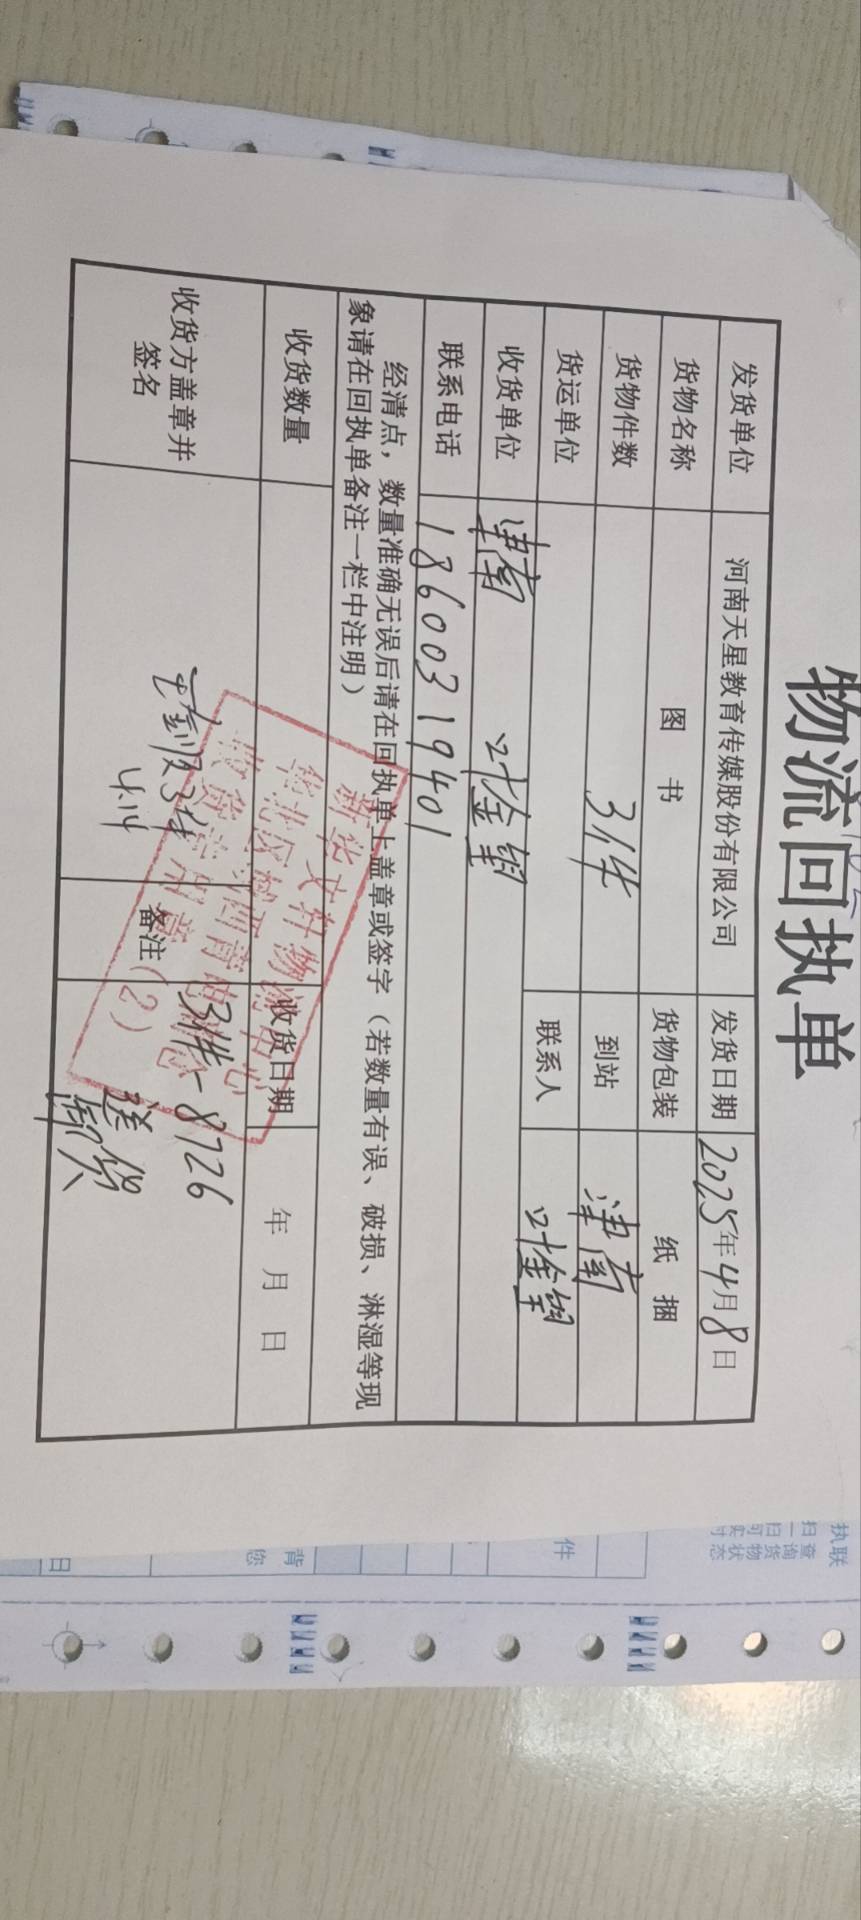 物流回执单
发货单位 河南天星教育传媒股份有限公司 发货日期 2025年4月8日
货物名称 图 书 货物包装 纸 捆
货物件数 31件 到站 津南
货运单位 联系人 叶金钢
收货单位 津南 叶金钢
联系电话 18600319401
经清点，数量准确无误后请在回执单上盖章或签字（若数量有误、破损、淋湿等现
象请在回执单备注一栏中注明）
收货数量 收货日期 年 月 日
收货方盖章并
签名
31件
4.14
备注
31件-8726
送货
卸货
新华文轩物流中心
华北区域西青
收货专用章（2）
执联
扫查
一询
扫货
可物
实状
时态
件
背
您
日